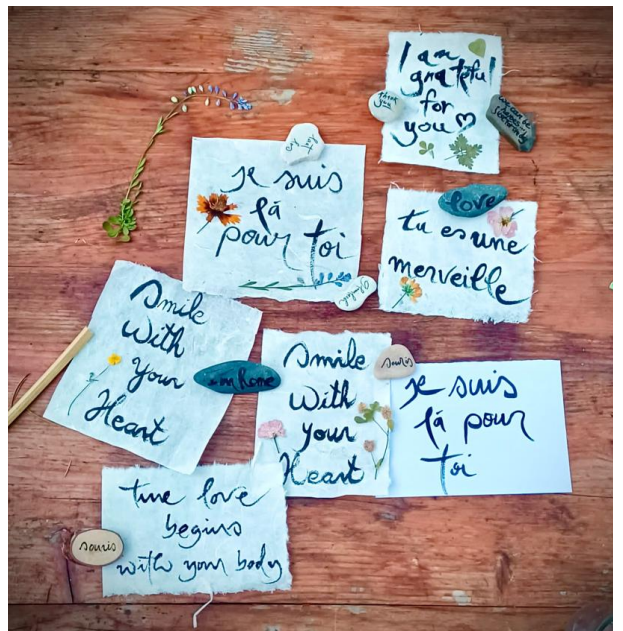 I am
grateful
for
you
thank
you
love
je suis
là
pour toi
tu es une
merveille
Smile
With
Your
Heart
am Home
Smile
With
your
Heart
souris
je suis
là pour
toi
true love
begins
with your body
souris